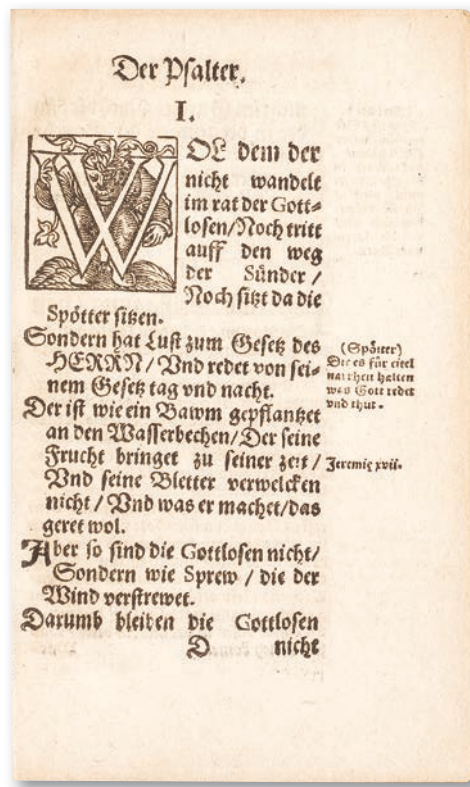 Der Psalter.
I.
WOL dem der
nicht wandelt
im rat der Gott⸗
losen/Noch tritt
auff den weg
der Sünder /
Noch sitzt da die
Spötter sitzen.
Sondern hat Lust zum Gesetz des
HERRN / Vnd redet von sei⸗
nem Gesetz tag vnd nacht.
Der ist wie ein Bawm gepflantzet
an den Wasserbechen/Der seine
Frucht bringet zu seiner zeit /
Vnd seine Bletter verwelcken
nicht / Vnd was er machet/das
geret wol.
Aber so sind die Gottlosen nicht/
Sondern wie Sprew / die der
Wind verstrewet.
Darumb bleiben die Gottlosen
D nicht
(Spötter)
Die es für eitel
narrheit halten
was Gott redet
vnd thut.
Jeremie xvij.